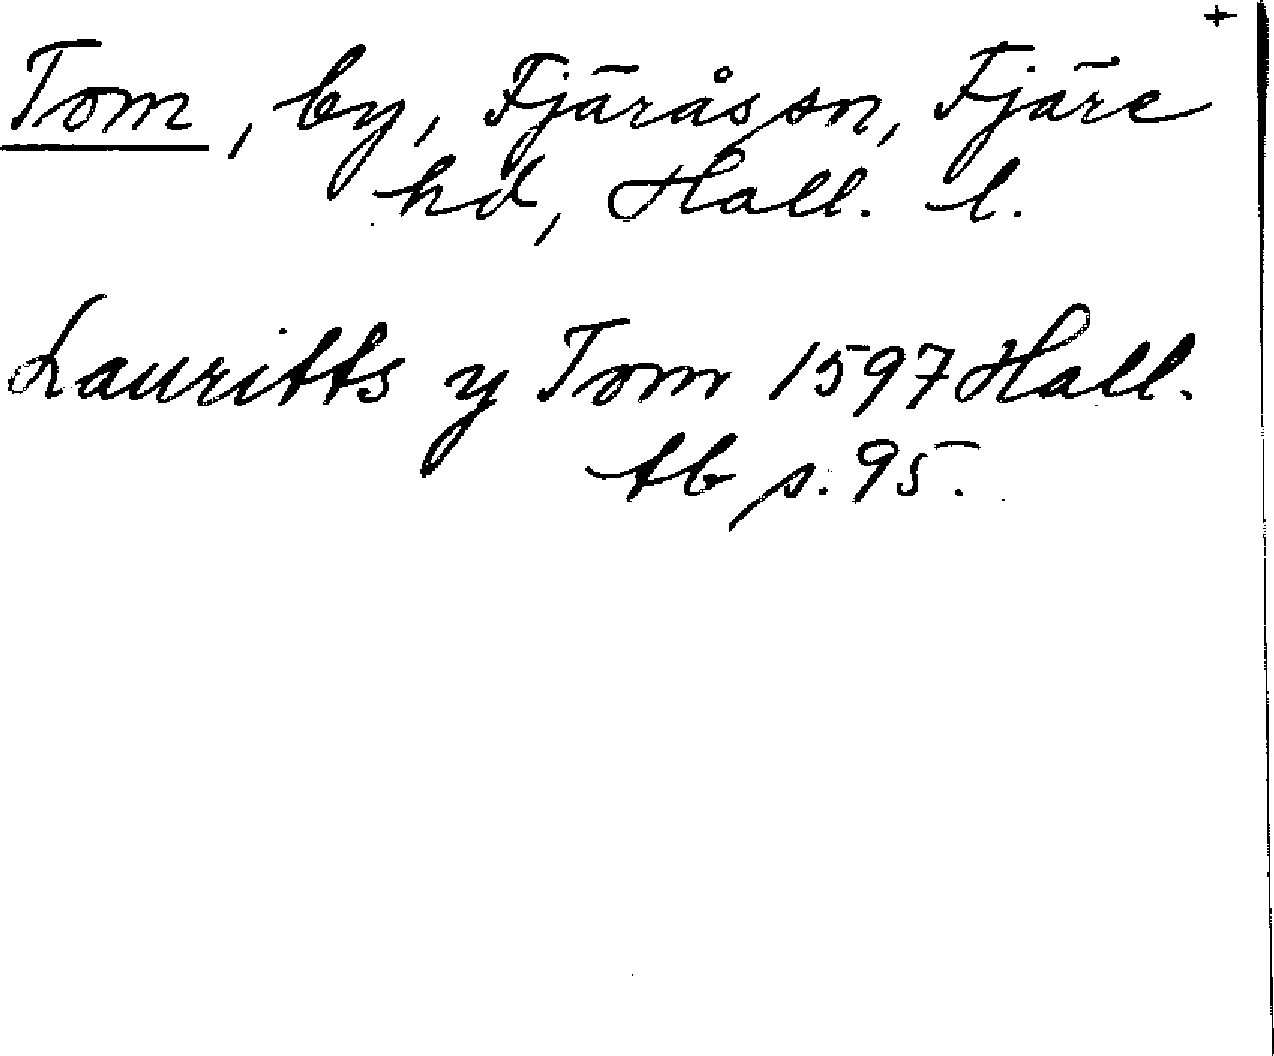 +
Tom, by, Fjärås sn, Fjäre
hd, Hall. l.
Lauritts y Tom 1597 Hall.
tb s. 95.